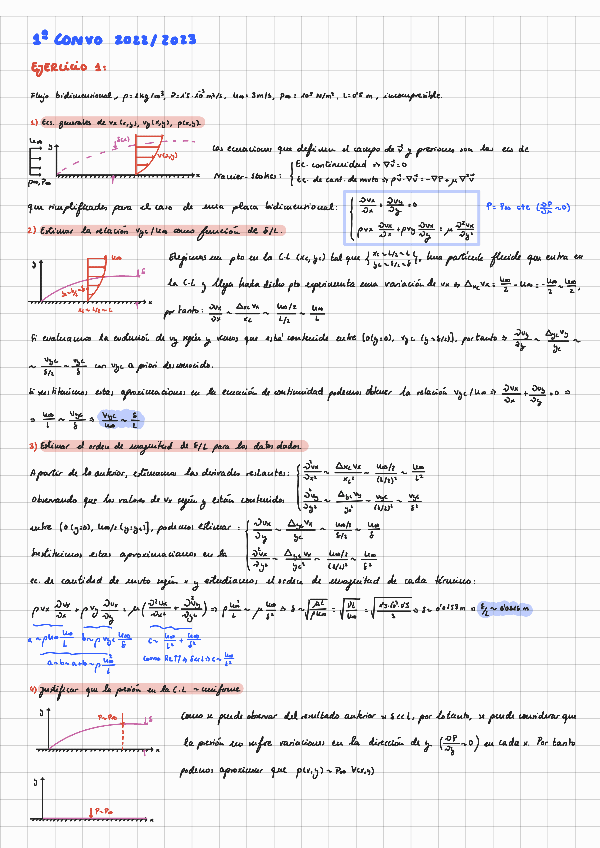 1ª CONVO 2022/2023
EJERCICIO 1:
Flujo bidimensional, ρ=1kg/m³, ν=1'5·10⁻⁵ m²/s, u∞=3m/s, p∞=10⁵ N/m², L=0'5m, incompresible.
1) Ecs. generales de vx(x,y), vy(x,y), p(x,y).
Las ecuaciones que definen el campo de v⃗ y presiones son las ecs de
Navier-Stokes: { Ec. continuidad ⇒ ∇·v⃗=0
Ec. de cant. de mvto ⇒ ρv⃗·∇v⃗ = -∇P + μ∇²v⃗
que simplificadas para el caso de una placa bidimensional: { ∂vx/∂x + ∂vy/∂y = 0
ρvx ∂vx/∂x + ρvy ∂vx/∂y = μ ∂²vx/∂y²
P=P∞ cte (∂P/∂x ~0)
2) Estimar la relación vyc/u∞ como función de δ/L.
Elegimos un pto en la C.L (xc,yc) tal que { xc~L/2~L, yc~δ/2~δ. Una partícula fluida que entra en
la C.L y llega hasta dicho pto experimenta una variación de vx ⇒ Δxc vx ~ u∞/2 - u∞ = -u∞/2 ~ u∞/2,
por tanto: ∂vx/∂x ~ Δxc vx/xc ~ u∞/2/L/2 ~ u∞/L
Si evaluamos la evolución de vy según y vemos que está contenido entre [0(y=0), vyc (y~δ/2)], por tanto ⇒ ∂vy/∂y ~ Δyc vy/yc ~
~ vyc/δ/2 ~ vyc/δ con vyc a priori desconocido.
Si sustituimos estas aproximaciones en la ecuación de continuidad podemos obtener la relación vyc/u∞ ⇒ ∂vx/∂x + ∂vy/∂y = 0 ⇒
⇒ u∞/L ~ vyc/δ ⇒ vyc/u∞ ~ δ/L
3) Estimar el orden de magnitud de δ/L para los datos dados
A partir de lo anterior, estimamos las derivadas restantes: { ∂²vx/∂x² ~ Δxc vx/xc² ~ u∞/2/(L/2)² ~ u∞/L²
∂²vy/∂y² ~ Δyc vy/yc² ~ vyc/(δ/2)² ~ vyc/δ²
Observando que los valores de vx según y están contenidos
entre [0(y=0), u∞/2(y=yc)], podemos estimar: { ∂vx/∂y ~ Δyc vx/yc ~ u∞/2/δ/2 ~ u∞/δ
∂²vx/∂y² ~ Δyc vx/yc² ~ u∞/2/(δ/2)² ~ u∞/δ²
Sustituimos estas aproximaciones en la
ec. de cantidad de mvto según x y estudiamos el orden de magnitud de cada término:
ρvx ∂vx/∂x + ρvy ∂vx/∂y = μ(∂²vx/∂x² + ∂²vx/∂y²) ⇒ ρ u∞²/L ~ μ u∞/δ² ⇒ δ ~ √(μL/ρu∞) = √(νL/u∞) = √(1'5·10⁻⁵·0'5/3) ⇒ δ ~ 0'00158 m ⇒ δ/L ~ 0'00316 m
a ~ ρu∞ u∞/L b ~ ρ vyc u∞/δ c ~ u∞/L² + u∞/δ²
a~b ~ a+b ~ ρ u∞²/L
como Re↑↑ ⇒ δ≪L ⇒ c ~ u∞/δ²
4) Justificar que la presión en la C.L ~ uniforme
Como se puede observar del resultado anterior ⇒ δ≪L, por lo tanto, se puede considerar que
la presión no sufre variaciones en la dirección de y (∂P/∂y ~0) en cada x. Por tanto
podemos aproximar que p(x,y) ~ P∞ ∀(x,y)
P~P∞
P~P∞